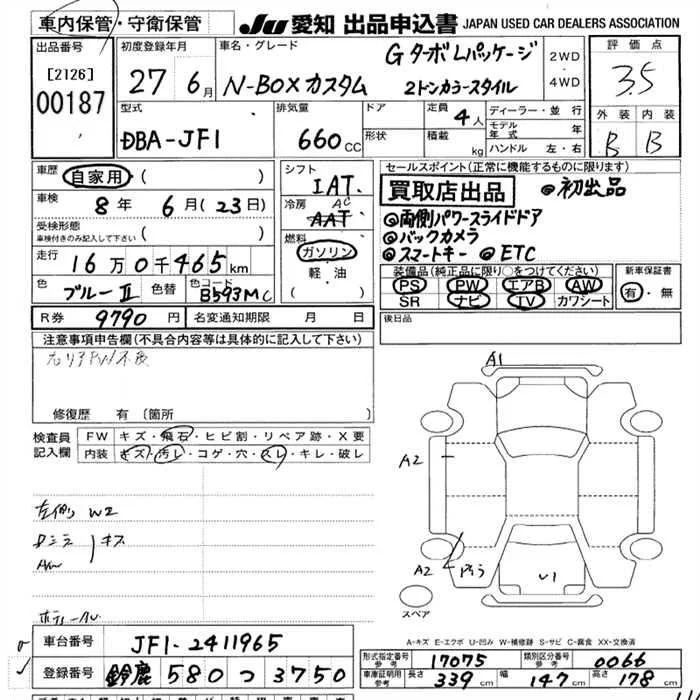 車内保管・守衛保管
JU 愛知 出品申込書 JAPAN USED CAR DEALERS ASSOCIATION
出品番号
[2126]
00187
初度登録年月
27 6月
車名・グレード
G ターボ Lパッケージ
N-BOXカスタム 2トンカラースタイル
2WD
・
4WD
評価点
3.5
外装 内装
B B
型式
DBA-JF1
排気量
660 CC
ドア
形状
定員 4人
積載 kg
ディーラー・並行
モデル年式 年
ハンドル 左・右
車歴 自家用 ( )
車検 8年 6月(23日)
受検形態
車検付きのみ記入して下さい ( )
走行 16万0千465km
色 ブルーⅡ 色替 色コード B593MC
シフト
IAT
冷房 AC
AAT
燃料
ガソリン
軽・油
( )
セールスポイント(正常に機能するものに限ります)
買取店出品 ◎初出品
◎両側パワースライドドア
◎バックカメラ
◎スマートキー ◎ETC
装備品(純正品に限り○をつけてください)
PS PW エアB AW
SR ナビ TV カワシート
新車保証書
有・無
R券 9790円 名変通知期限 月 日
後日品
注意事項申告欄(不具合内容等は具体的に記入して下さい)
右リアPW不良
修復歴 有 〔箇所 〕
検査員
記入欄
FW キズ・飛石・ヒビ割・リペア跡・X要
内装 キズ・汚レ・コゲ・穴・スレ・キレ・破レ
左側 W2
キズ
AW
A1
A2
A2
U1
スペア
A-キズ E-エクボ U-凹み W-補修跡 S-サビ C-腐食 XX-交換済
車台番号 JF1-2411965
登録番号 鈴鹿 580 つ 3750
形式指定番号
参考 17075
類別区分番号
参考 0066
車庫証明用
参考 長さ 339cm 幅 147cm 高さ 178cm